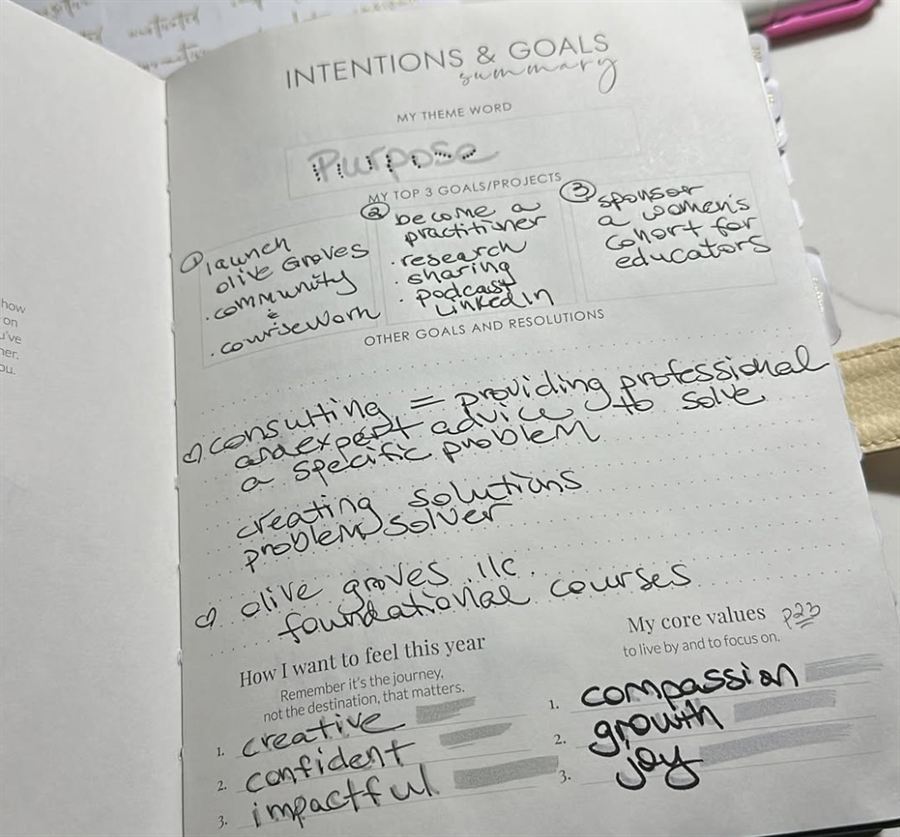 INTENTIONS & GOALS
summary
MY THEME WORD
Purpose
MY TOP 3 GOALS/PROJECTS
① launch
olive Groves
· community
&
· coursework
② become a
practitioner
· research
· sharing
· podcast
LinkedIn
③ sponsor
a women's
cohort for
educators
OTHER GOALS AND RESOLUTIONS
♡ consulting = providing professional
and expert advice to solve
a specific problem
creating solutions
problem solver
♡ olive groves llc.
foundational courses
How I want to feel this year
Remember it's the journey,
not the destination, that matters.
1. creative
2. confident
3. impactful
My core values p23
to live by and to focus on.
1. compassion
2. growth
3. joy
how
on
u've
her.
ou.